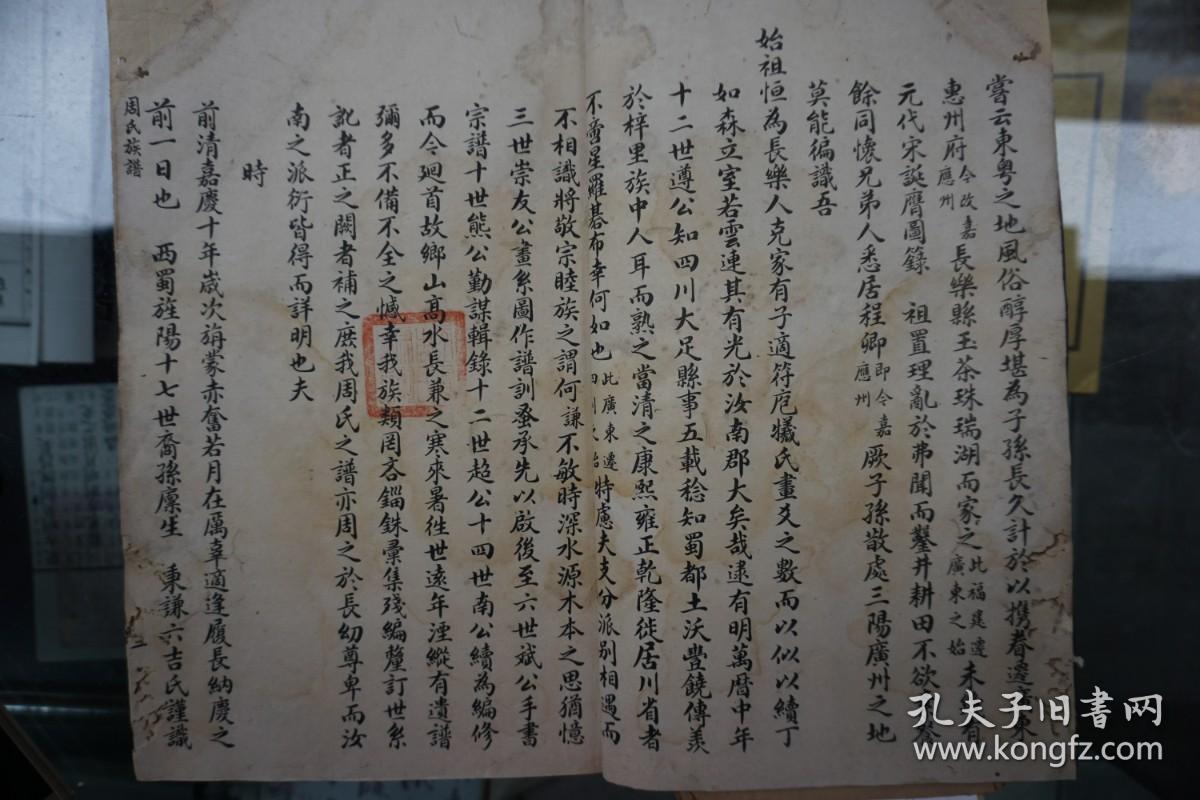 嘗云東粵之地風俗醇厚堪為子孫長久計於以攜眷遷東
惠州府今改嘉應州長樂縣玉茶珠瑞湖而家之此福建遷廣東之始未有
元代宋誕膺圖錄 祖置理亂於弗聞而鑿井耕田不欲
餘同懷兄弟人悉居程鄉即今嘉應州厥子孫散處三陽廣州之地
莫能徧識吾
始祖恒為長樂人克家有子適符庖犧氏畫爻之數而以似以續丁
如森立室若雲連其有光於汝南郡大矣哉逮有明萬曆中年
十二世遵公知四川大足縣事五載稔知蜀都土沃豐饒傳羨
於梓里族中人耳而熟之當清之康熙雍正乾隆徙居川省者
不啻星羅碁布幸何如也此廣東遷四川之始特慮夫支分派別相遇而
不相識將敬宗睦族之謂何謙不敏時深水源木本之思猶憶
三世崇友公畫系圖作譜訓蚤承先以啟後至六世斌公手書
宗譜十世熊公勤謀輯錄十二世超公十四世南公續為編修
而今迴首故鄉山高水長兼之寒來暑徃世遠年湮縱有遺譜
彌多不備不全之憾幸我族類罔吝錙銖彙集殘編釐訂世系
訛者正之闕者補之庶我周氏之譜亦周之於長幼尊卑而汝
南之派衍皆得而詳明也夫
時
前清嘉慶十年歲次旃蒙赤奮若月在厲辜適逢履長納慶之
前一日也 西蜀旌陽十七世裔孫廩生 東謙六吉氏謹識
周氏族譜 三
孔夫子旧书网
www.kongfz.com